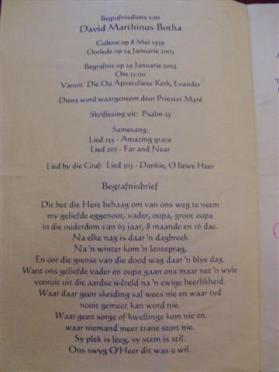 Begrafnisdiens van
David Marthinus Botha
Gebore op 8 Mei 1939
Oorlede op 24 Januarie 2003
Begrafnis op 29 Januarie 2003
Om 11:00
Vanuit Die Ou Apostoliese Kerk, Evander
Diens word waargeneem deur Priester Maré
Skriflesing uit: Psalm 23
Samesang:
Lied 255 - Amazing grace
Lied 207 - Far and Near
Lied by die Graf: Lied 303 - Dankie, O liewe Heer
Begrafnisbrief
Dit het die Here behaag om van ons weg te neem
my geliefde eggenoot, vader, oupa, groot oupa
in die ouderdom van 63 jaar, 8 maande en 16 dae.
Na elke nag is daar 'n dagbreek
Na 'n winter kom 'n lenteprag.
En oor die grense van die dood wag daar 'n blye dag.
Want ons geliefde vader en oupa gaan ons maar net 'n wyle
vooruit uit die aardse wêreld na 'n ewige heerlikheid.
Waar daar geen skeiding sal wees nie en waar tyd
nooit gemeet kan word nie.
Waar geen sorge of kwellinge kom nie en
waar niemand meer trane stort nie.
Sy plek is leeg, sy stem is stil.
Ons swyg O'Heer dit was u wil.